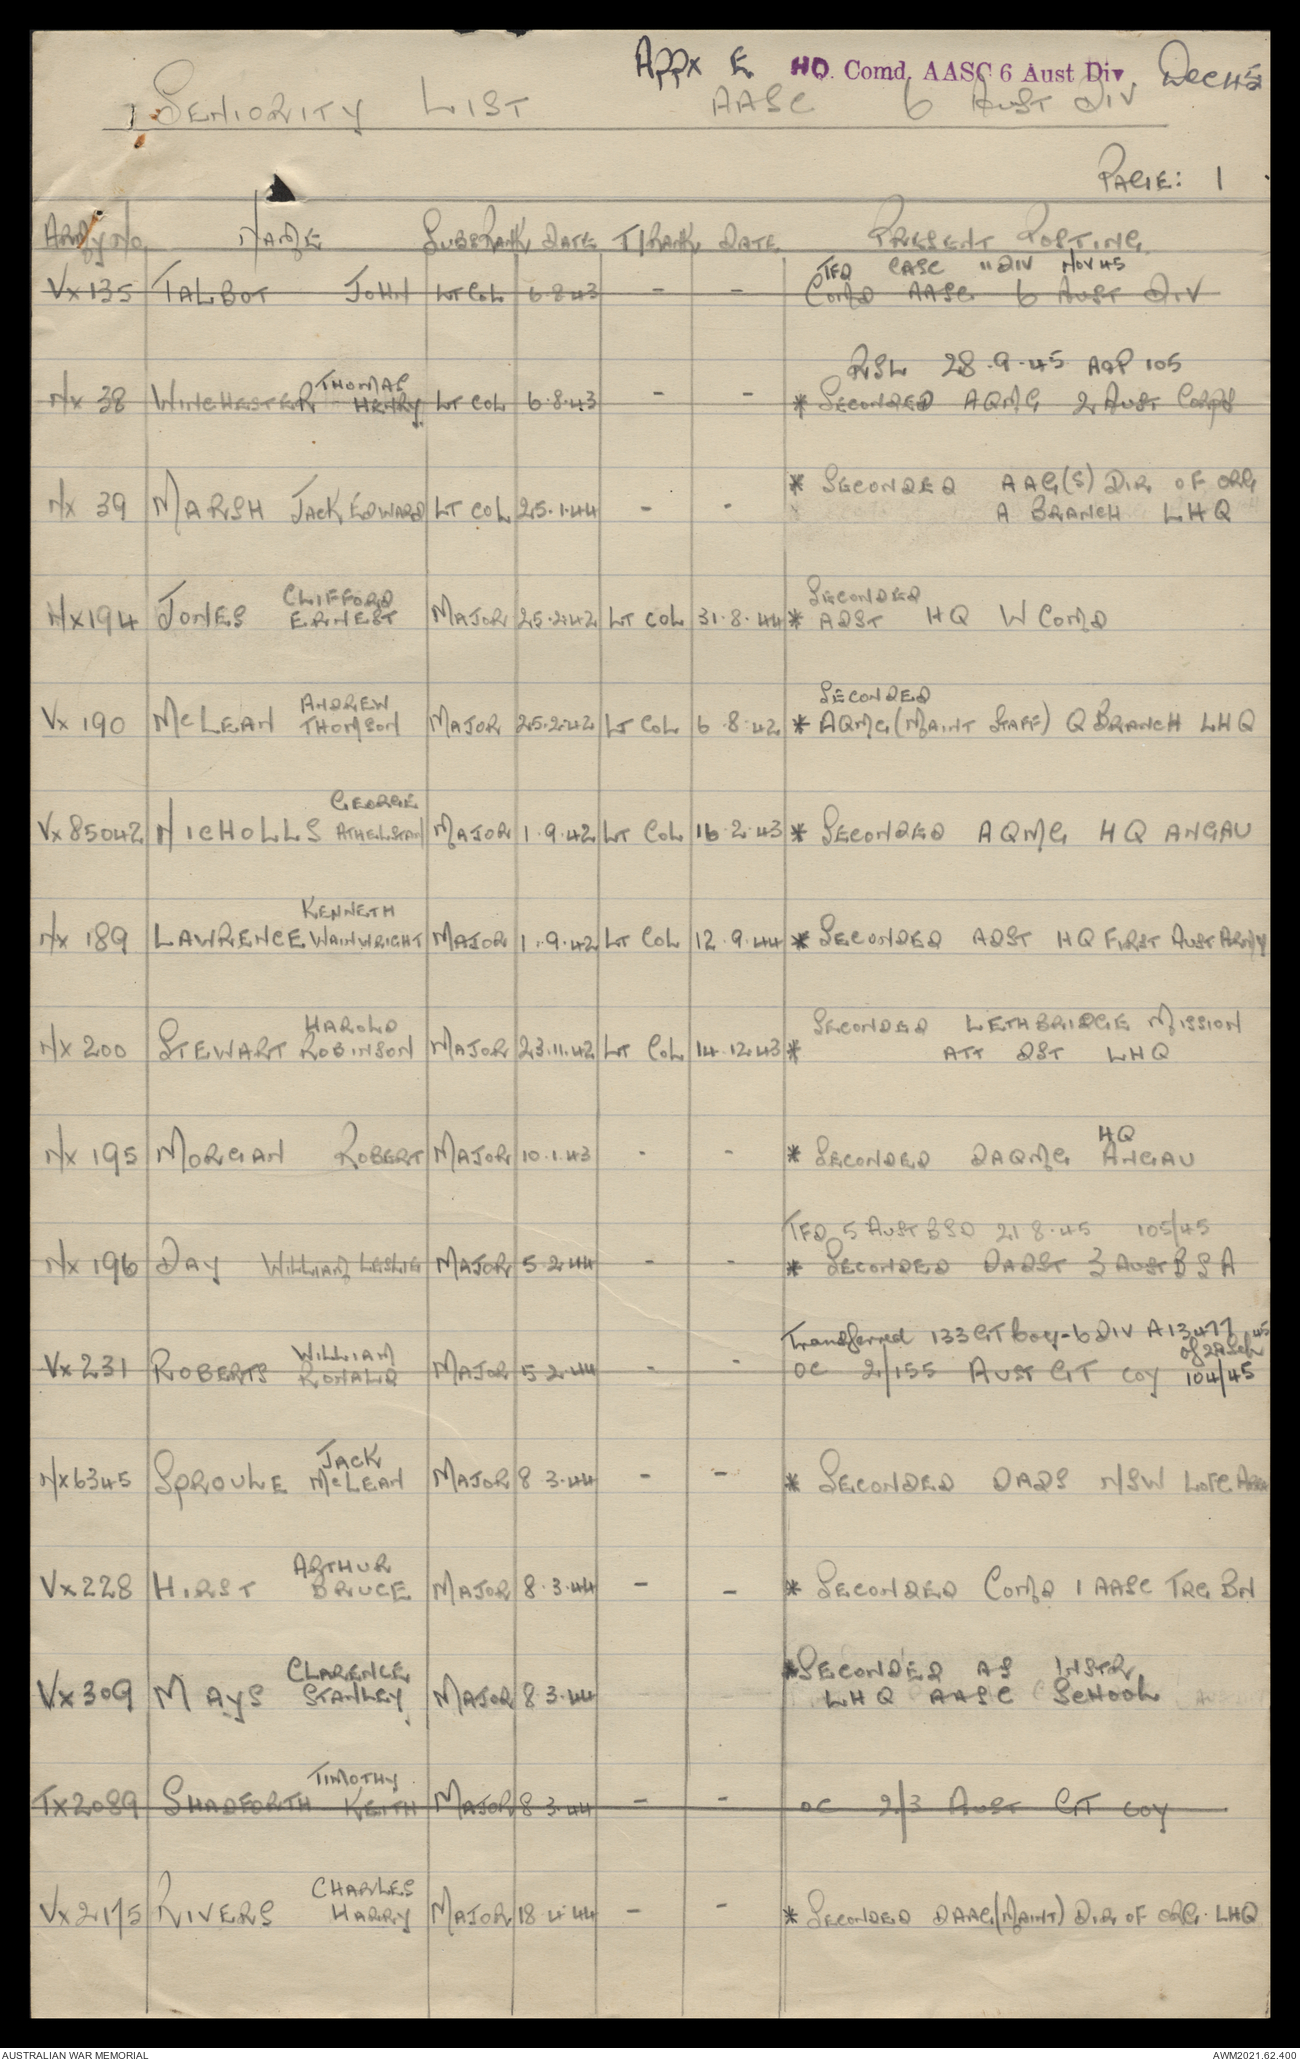 Appx E HQ Comd. AASC 6 Aust Div Dec 45
SENIORITY LIST AASC 6 AUST DIV
PAGE: 1
ARMY No. NAME SUBS RANK DATE T/RANK DATE PRESENT POSTING
TFD CASC 11 DIV NOV 45
VX 135 TALBOT JOHN LT COL 6.8.43 - - COMD AASC 6 AUST DIV
RSL 28.9.45 AQP 105
NX 38 WINCHESTER THOMAS HENRY LT COL 6.8.43 - - * SECONDED AQMG 2 AUST CORPS
NX 39 MARSH JACK EDWARD LT COL 25.1.44 - - * SECONDED AAG(S) DIR OF ORG
A BRANCH LHQ
NX194 JONES CLIFFORD ERNEST MAJOR 25.2.42 LT COL 31.8.44 * SECONDED ADST HQ W COMD
VX 190 McLEAN ANDREW THOMSON MAJOR 25.2.42 LT COL 6.8.42 * SECONDED AQMG (MAINT STAFF) Q BRANCH LHQ
VX 85042 NICHOLLS GEORGE ATHELSTAN MAJOR 1.9.42 LT COL 16.2.43 * SECONDED AQMG HQ ANGAU
NX 189 LAWRENCE KENNETH WAINWRIGHT MAJOR 1.9.42 LT COL 12.9.44 * SECONDED ADST HQ FIRST AUST ARMY
NX 200 STEWART HAROLD ROBINSON MAJOR 23.11.42 LT COL 14.12.43 * SECONDED LETHBRIDGE MISSION
ATT DST LHQ
NX 195 MORGAN ROBERT MAJOR 10.1.43 - - * SECONDED DAQMG HQ ANGAU
TFD 5 AUST BSD 21 8.45 105/45
NX 196 DAY WILLIAM LESLIE MAJOR 5.2.44 - - * SECONDED DADST 3 AUST B S A
Transferred 133 GT Coy - 6 DIV A13477
VX 231 ROBERTS WILLIAM RONALD MAJOR 5.2.44 - - OC 2/155 AUST GT COY 104/45
NX6345 SPROULE JACK McLEAN MAJOR 8 3.44 - - * SECONDED DADS NSW L of C AREA
VX 228 HIRST ARTHUR BRUCE MAJOR 8.3.44 - - * SECONDED COMD 1 AASC TRG BN
VX 309 MAYS CLARENCE STANLEY MAJOR 8.3.44 * SECONDED AS INSTR
LHQ AASC SCHOOL
TX2089 SHADFORTH TIMOTHY KEITH MAJOR 8.3.44 - - OC 2/3 AUST GT COY
VX 2175 RIVERS CHARLES HARRY MAJOR 18.4.44 - - * SECONDED DAAG (MAINT) DIR OF ORG. LHQ
AUSTRALIAN WAR MEMORIAL AWM2021.62.400